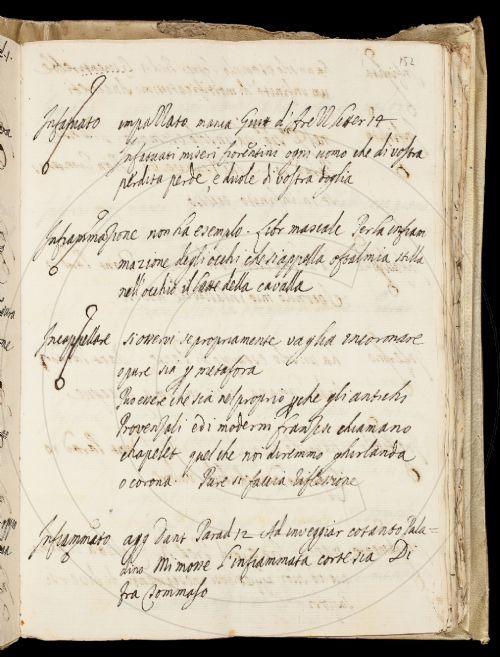 152
Infatuato impallato manca Guit d'Are Letter 14
Infatuati miseri fiorentini ogni uomo che di vostra
perdita perde, e duole di vostra doglia
Infiammazione non ha esempio. Libr mascale Per la infiam
mazione degli occhi che si appella oftalmia stilla
nell'occhio il latte della cavalla
Incappellare si osservi se propriamente vaglia incoronare
o pure sia p metafora
Può essere che sia nel proprio pche gli antichi
Provenzali ed i moderni franzesi chiamano
chapelet quel che noi diremmo ghirlanda
o corona. Pure si faccia riflessione
Infiammato agg Dant Parad 12 Ad inveggiar cotanto Pala=
dino Mi mosse l'infiammata cortesia Di
fra Tommaso